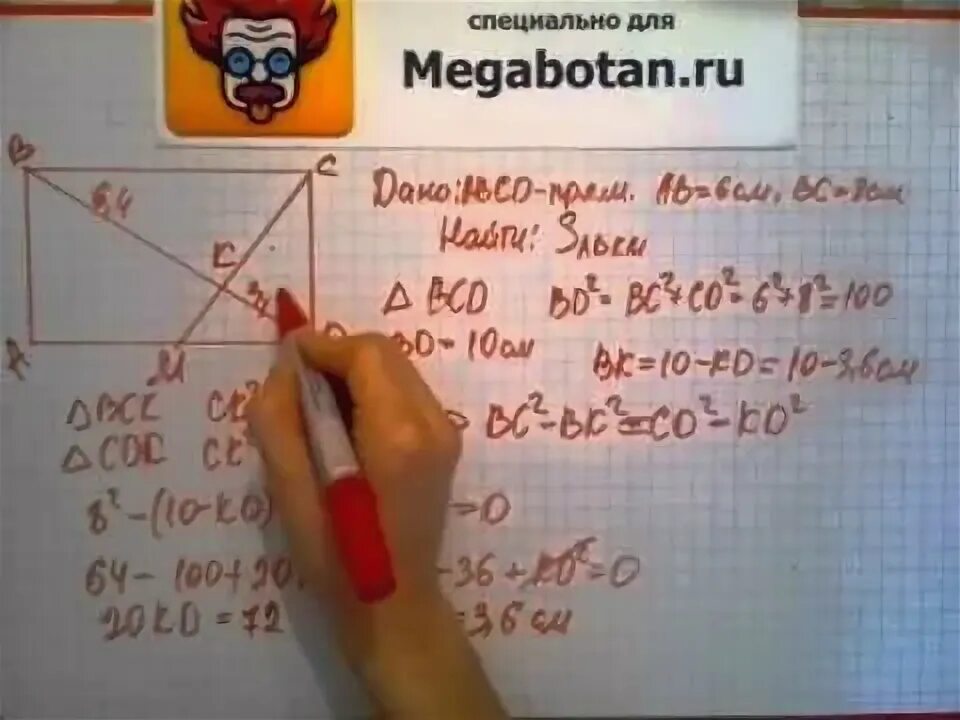 специально для
Megabotan.ru
B C
6,4
K
3,
A M D
Дано: ABCD-прям. AB=6см, BC=8см
Найти:
△ BCD BD²= BC²+CD²= 6²+8²=100
BD= 10см
BK=10-KD=10-3,6см
△BCK CK²
BC²-BK²=CD²-KD²
△CDK CK²
8²-(10-KD) =0
64- 100+20 -36+KD²=0
20KD=72 =3,6см